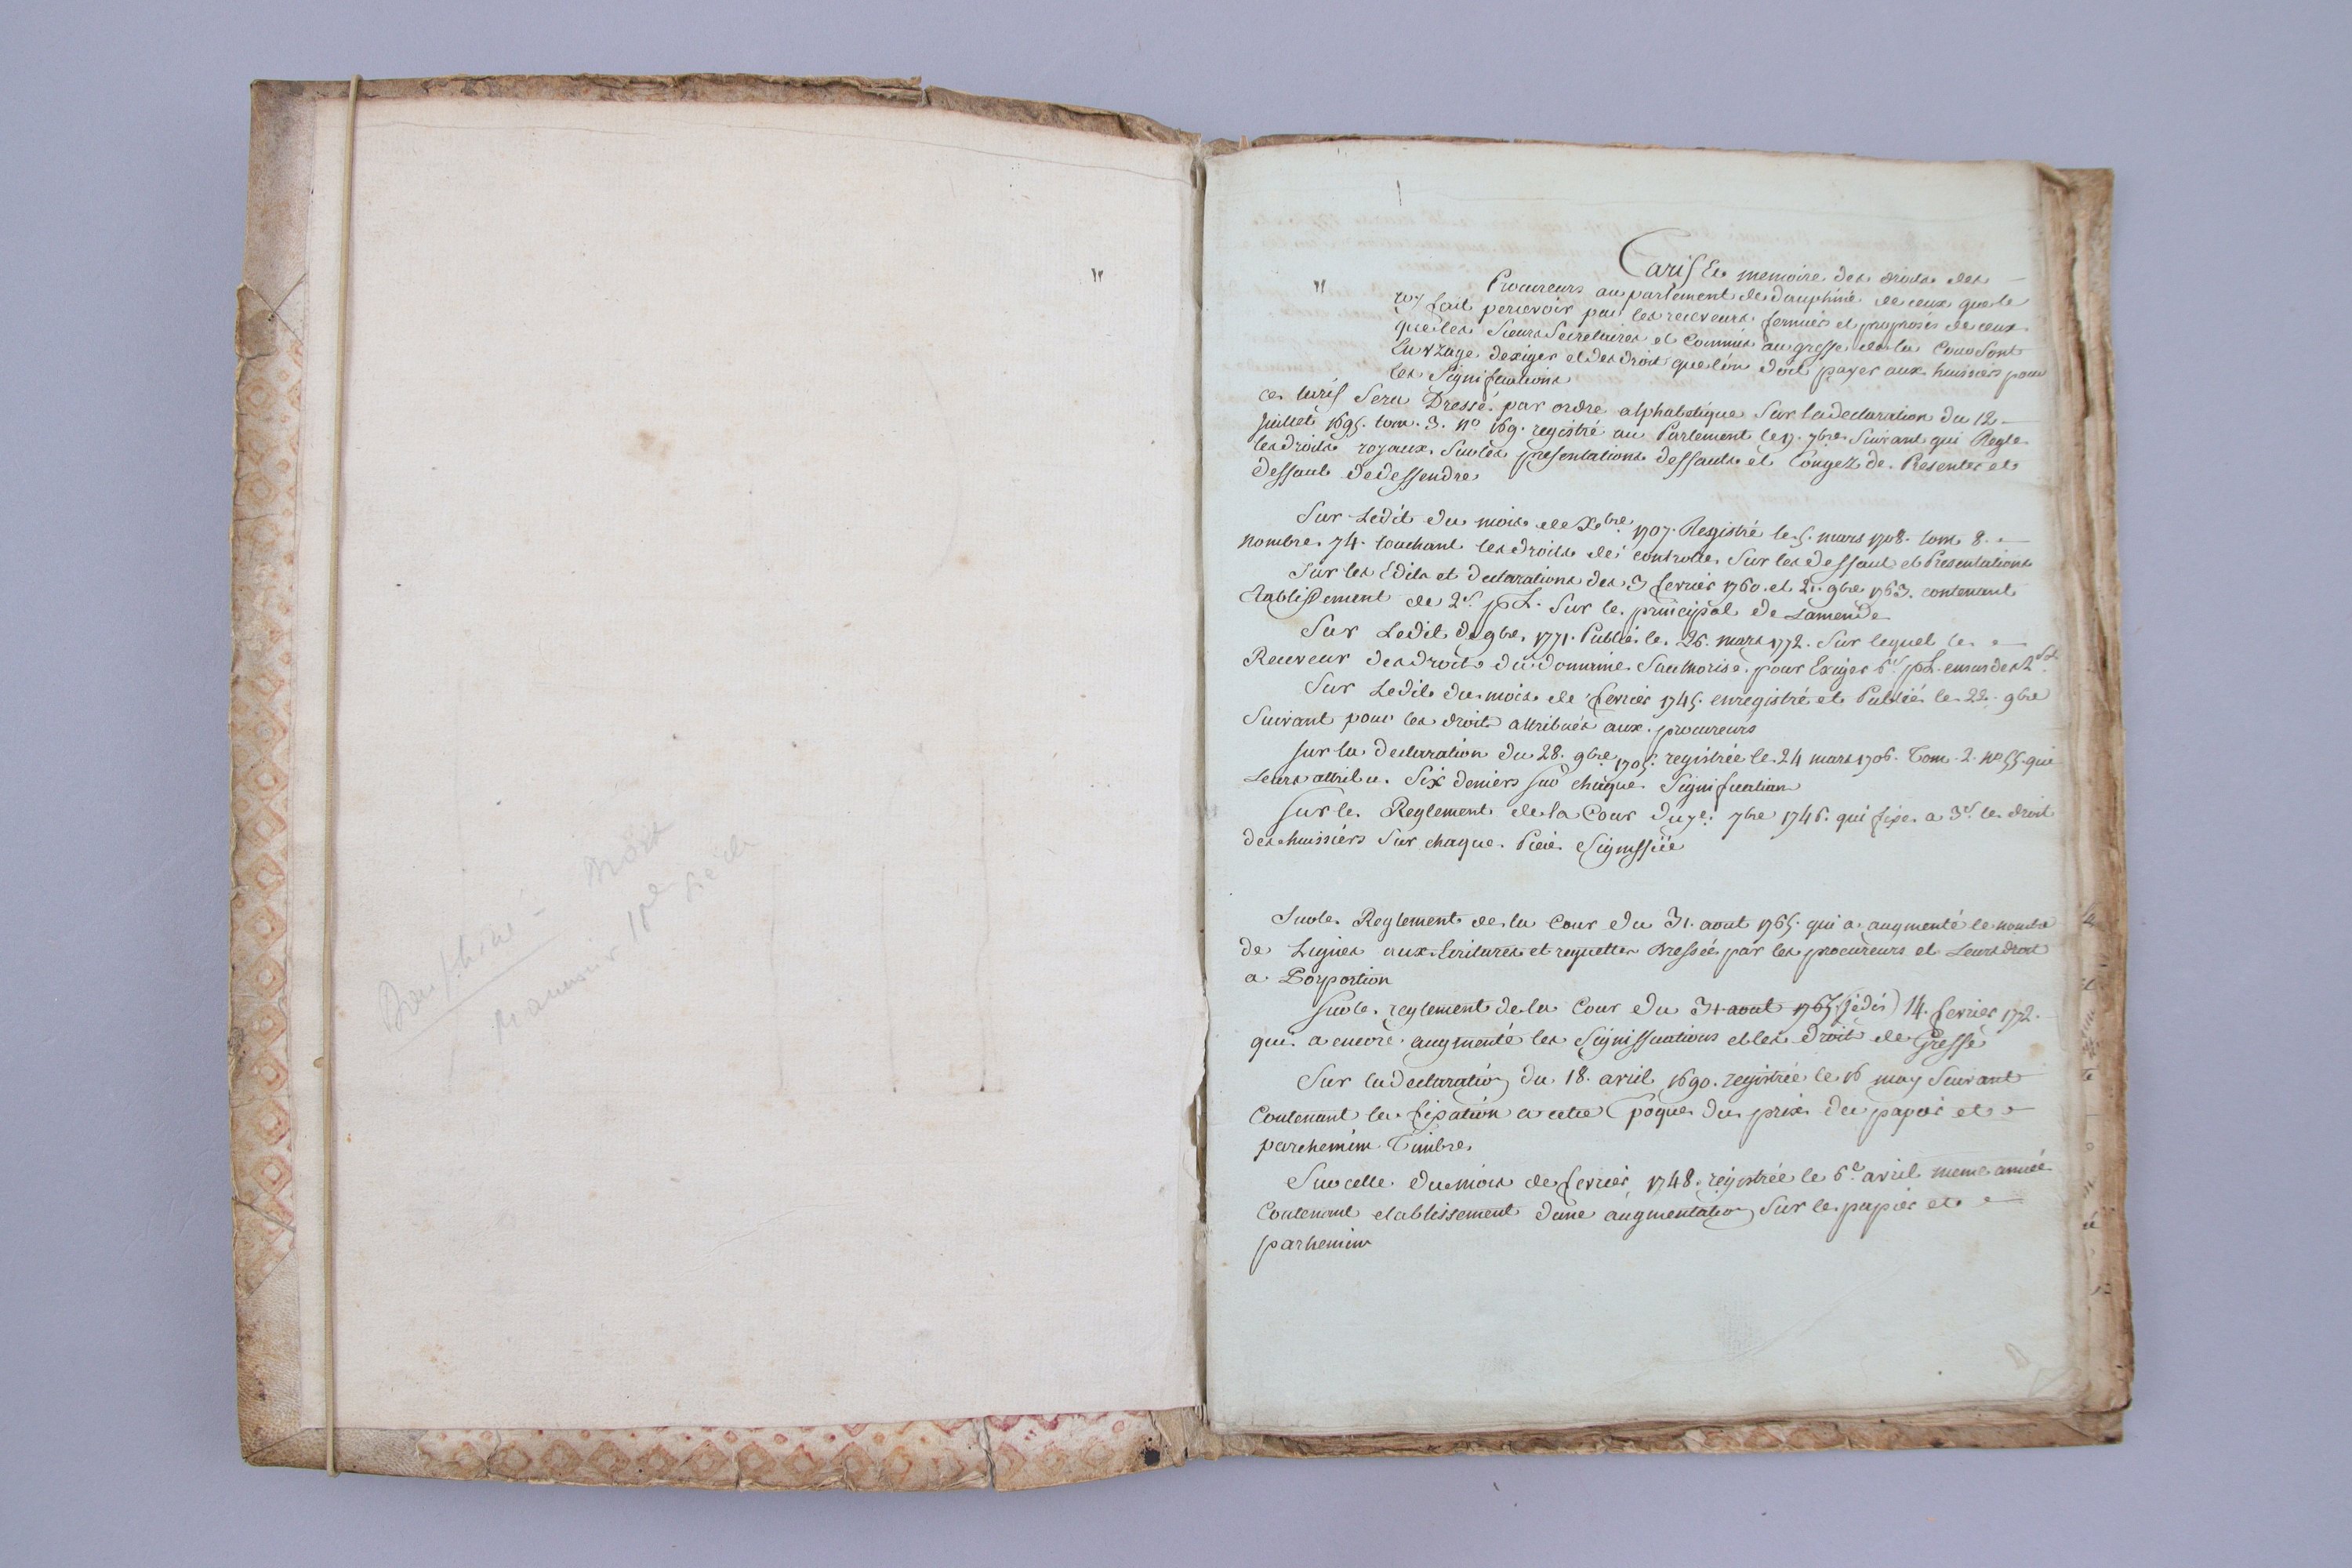 Dauphiné - Droit
Manuscrit 18e siècle
Tarif Et memoire des droits des
Procureurs au parlement de dauphiné de ceux que le
roy fait percevoir par les receveurs fermiers et preposés de ceux
que les Sieurs Secretaires et Commis au greffe de la Cour Sont
En uzage dexiger et des droit que lon doit payer aux huissiers pour
les Significations
ce tarif Sera Dressé par ordre alphabetique Sur la declaration du 12
juillet 1695. tom. 3. no 169. registré au Parlement le 17. 7bre Suivant qui Regle
les droits royaux Sur les presentations deffauts et Congez de Presenter et
deffaut de deffendre
Sur Ledit du mois de Xbre 1707. Registré le 5. mars 1708. tom 8.
nombre 74. touchant les droits de controlle Sur les deffaut et Presentations
Sur les Edits et declarations des 3 fevrier 1760. et 21. 9bre 1763. contenant
Etablissement de 2s. p L. Sur le principal de Lamende
Sur Ledit de 9bre 1771. Publié le 26. mars 1772. Sur lequel le
Receveur des droits du domaine Sauthorise pour Exiger 6s p L. en sus des 2s
Sur Ledit du mois de fevrier 1745. enregistré et Publié le 22. 9bre
Suivant pour les droits attribués aux procureurs
sur la declaration du 28. 9bre 1705. registrée le 24 mars 1706. Tom. 2. no 55. qui
Leurs attribue Six deniers sur chaque Signification
Sur le Reglement de la Cour du 7e 7bre 1746. qui fixe a 3s. le droit
des huissiers Sur chaque Piéce Signiffiée
Sur le Reglement de la Cour du 31. aout 1765. qui a augmenté le nombre
de Lignes aux Ecritures et requettes Dressée par les procureurs et Leurs droit
a Porportion
Sur le reglement de la Cour du 31 aout 1765 (jédis) 14. fevrier 1772.
qui a encore augmenté les Signiffications et les droit de Greffe
Sur la declaration du 18. avril 1690. registrée le 16 may Suivant
Contenant la fixation a cette Epoque du prix du papier et
parchemim Timbre
Sur celle du mois de fevrier 1748. régistrée le 6e avril meme année
Contenant etablissement dune augmentation Sur le papier et
parhemim